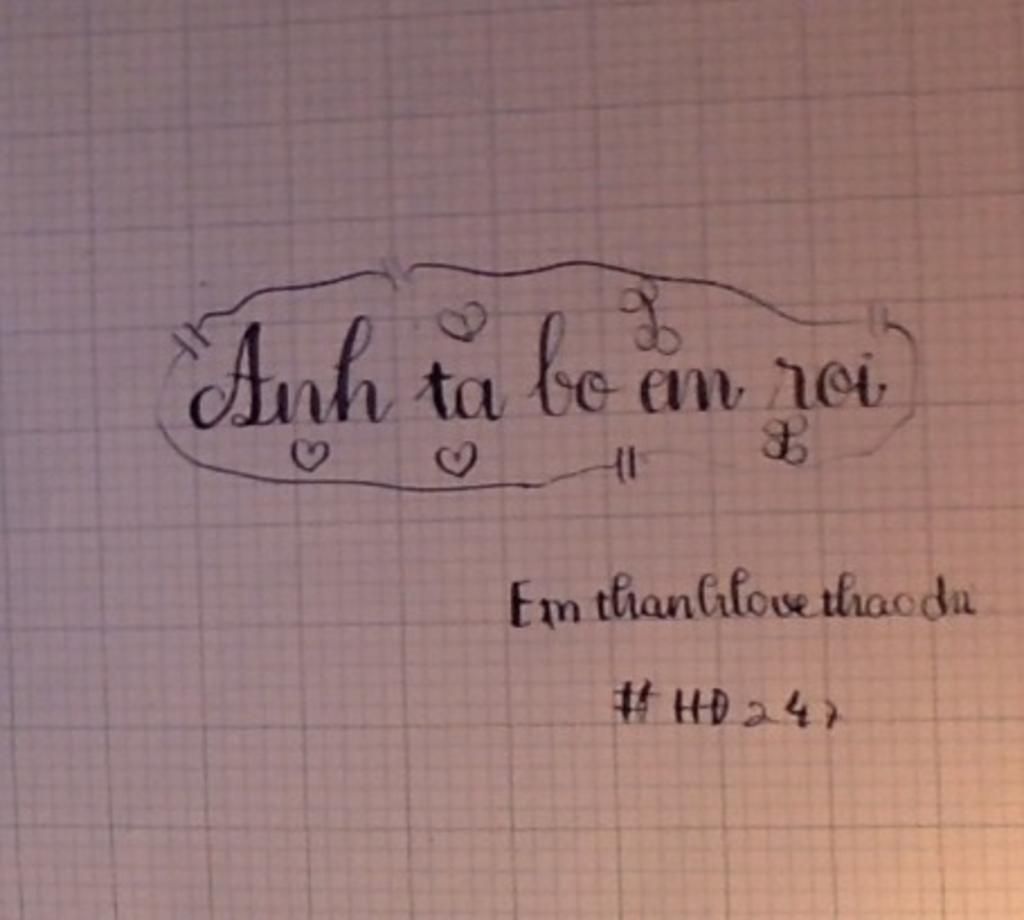 Anh ta bo em roi
Em thanhlove thaodu
# HD 247